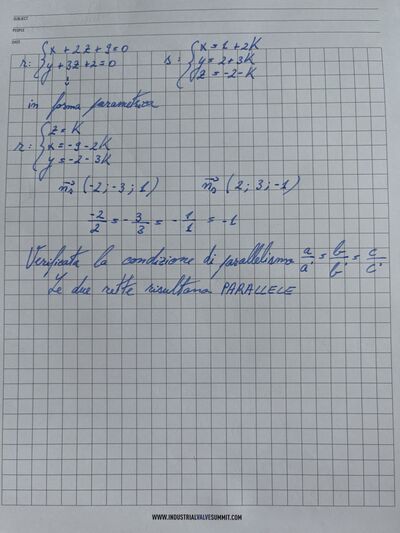 SUBJECT
PEOPLE
DATE
r: { x + 2z + 9 = 0
y + 3z + 2 = 0
s: { x = 1 + 2K
y = 2 + 3K
z = -2 - K
↓
in forma parametrica
r: { z = K
x = -9 - 2K
y = -2 - 3K
n⃗r (-2; -3; 1) n⃗s (2; 3; -1)
-2/2 = -3/3 = -1/1 = -1
Verificata la condizione di parallelismo a/a' = b/b' = c/c'
Le due rette risultano PARALLELE
WWW.INDUSTRIALVALVESUMMIT.COM